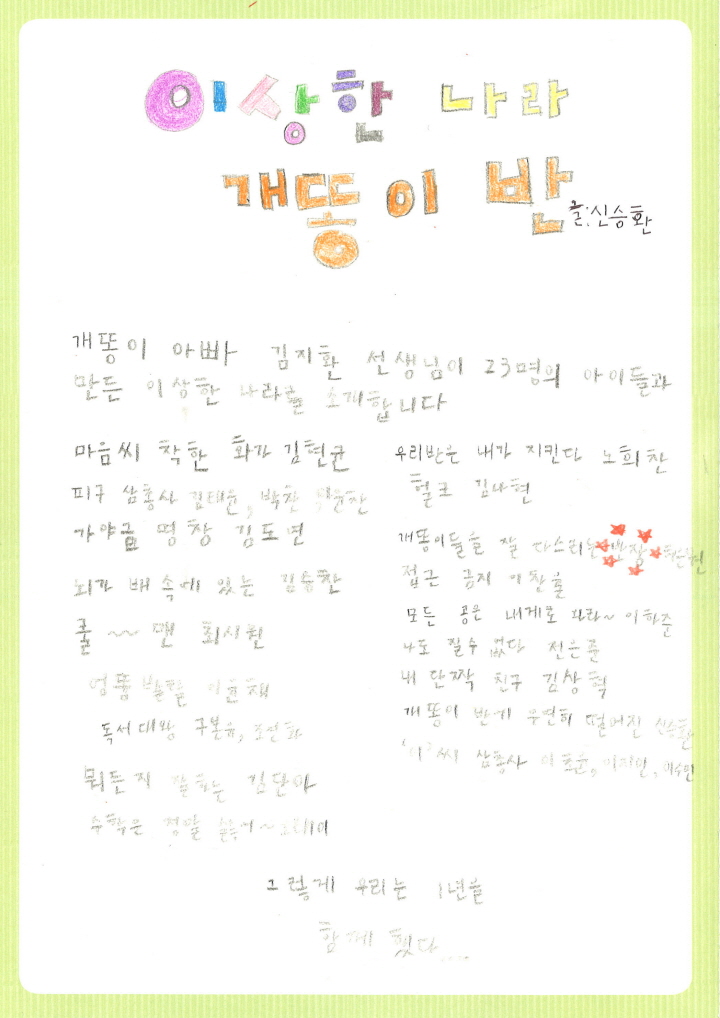 이상한 나라
개똥이 반
글:신승환
개똥이 아빠 김지환 선생님이 23명의 아이들과
만든 이상한 나라를 소개합니다
마음씨 착한 화가 김현균
피구 삼총사 김태윤, 박찬
가야금 명창 김도연
뇌가 배 속에 있는 김승찬
롤~~맨 최시원
엉뚱 발랄 이윤채
독서 대왕 구본유, 조연화
뭐든지 잘하는 김단아
수학은 정말 싫어~
우리반은 내가 지킨다 노희찬
헐크 김나현
개똥이들을 잘 다스리는 반장
접근 금지 이찬율
모든 공은 내게로 와라~ 이하준
나도 질 수 없다 전은준
내 단짝 친구 김상혁
개똥이 반에 우연히 떨어진 신승환
'이'씨 삼총사 이효준, 이지인, 이수민
그렇게 우리는 1년을
함께 했다....